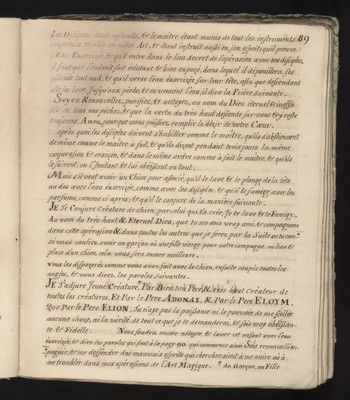 Les Disciples étant instruits, & le maître étant munis de tout les instruments 89
Art, & étant instruit aussi en son esprit, qu'il prenne
l'Eau Exorcisée & qu'il entre dans le lieu secret de l'opération avec ses disciples,
il faut que l'endroit soit éclatant & bien exposé, dans lequel il dépouillera ses
disciple tout nud, & qu'il verse l'eau exorcisée sur leur tête, afin que descendant
elle les lave jusqu'aux pieds, & en versant l'eau, il dira la Prière suivante.
Soyez Renouvellez, purifiez, & nettoyez, au nom du Dieu éternel & ineffa-
ble, de tous vos péchez, & que la vertu du très haut descende sur vous & y reste
toujours. Amen, pour que vous puissiez remplir le désir de votre Cœur.
après quoi les disciples doivent s'habiller comme le maître, qu'ils s'abstiennent
de même comme le maître à fait, & qu'ils disent pendant trois jours la même
conjuration & oraison, & dans le même ordre comme à fait le maître, & qu'ils
le suivent, en l'imitant & lui obéissant en tout.
Mais s'il veut avoir un Chien pour associé, qu'il le lave & le plonge de la tête
au dos avec l'eau exorcisée, comme avec les disciples, & qu'il le fumige avec les
parfums, comme ci après, & qu'il le conjure de la manière suivante.
Je te Conjure Créature de chien, par celui qui t'a créé, Je te lave & te Fumige,
Au nom du très haut & Eternel Dieu, que tu me sois vray ami & compagnon
dans cette opération & dans toutes les autres que je feray, par la Suite
si vous vouliez avoir un garçon ou une fille vierge pour votre compagne, au lieu &
place d'un Chien, cela seroit encore meilleure.
vous les disposerez comme vous avez fait avec le chien, ensuite coupez toutes les
ongles, & vous direz les paroles suivantes.
Je t'adjure Jeune Créature, Par Dieu ton Père & très haut Créateur de
toutes les créatures, Et Par le Pere ADONAY, & Par le Pere ELOYM,
Que Par le Pere ELION, tu n'aye pas la puissance ni le pouvoir de me celer
aucune chose, ni la vérité de tout ce que je te demanderai, & sois moy obéissan-
te & Fidelle.
nettoyer & laver cet enfant avec l'eau
exorcisée, & dire les paroles qui sont à la page 90. qui commence ainsi Sois
& me deffendre des mauvais esprits qui chercheroient à me nuire ou à
me troubler dans mes opérations de l'Art Magique. de Garçon, ou Fille